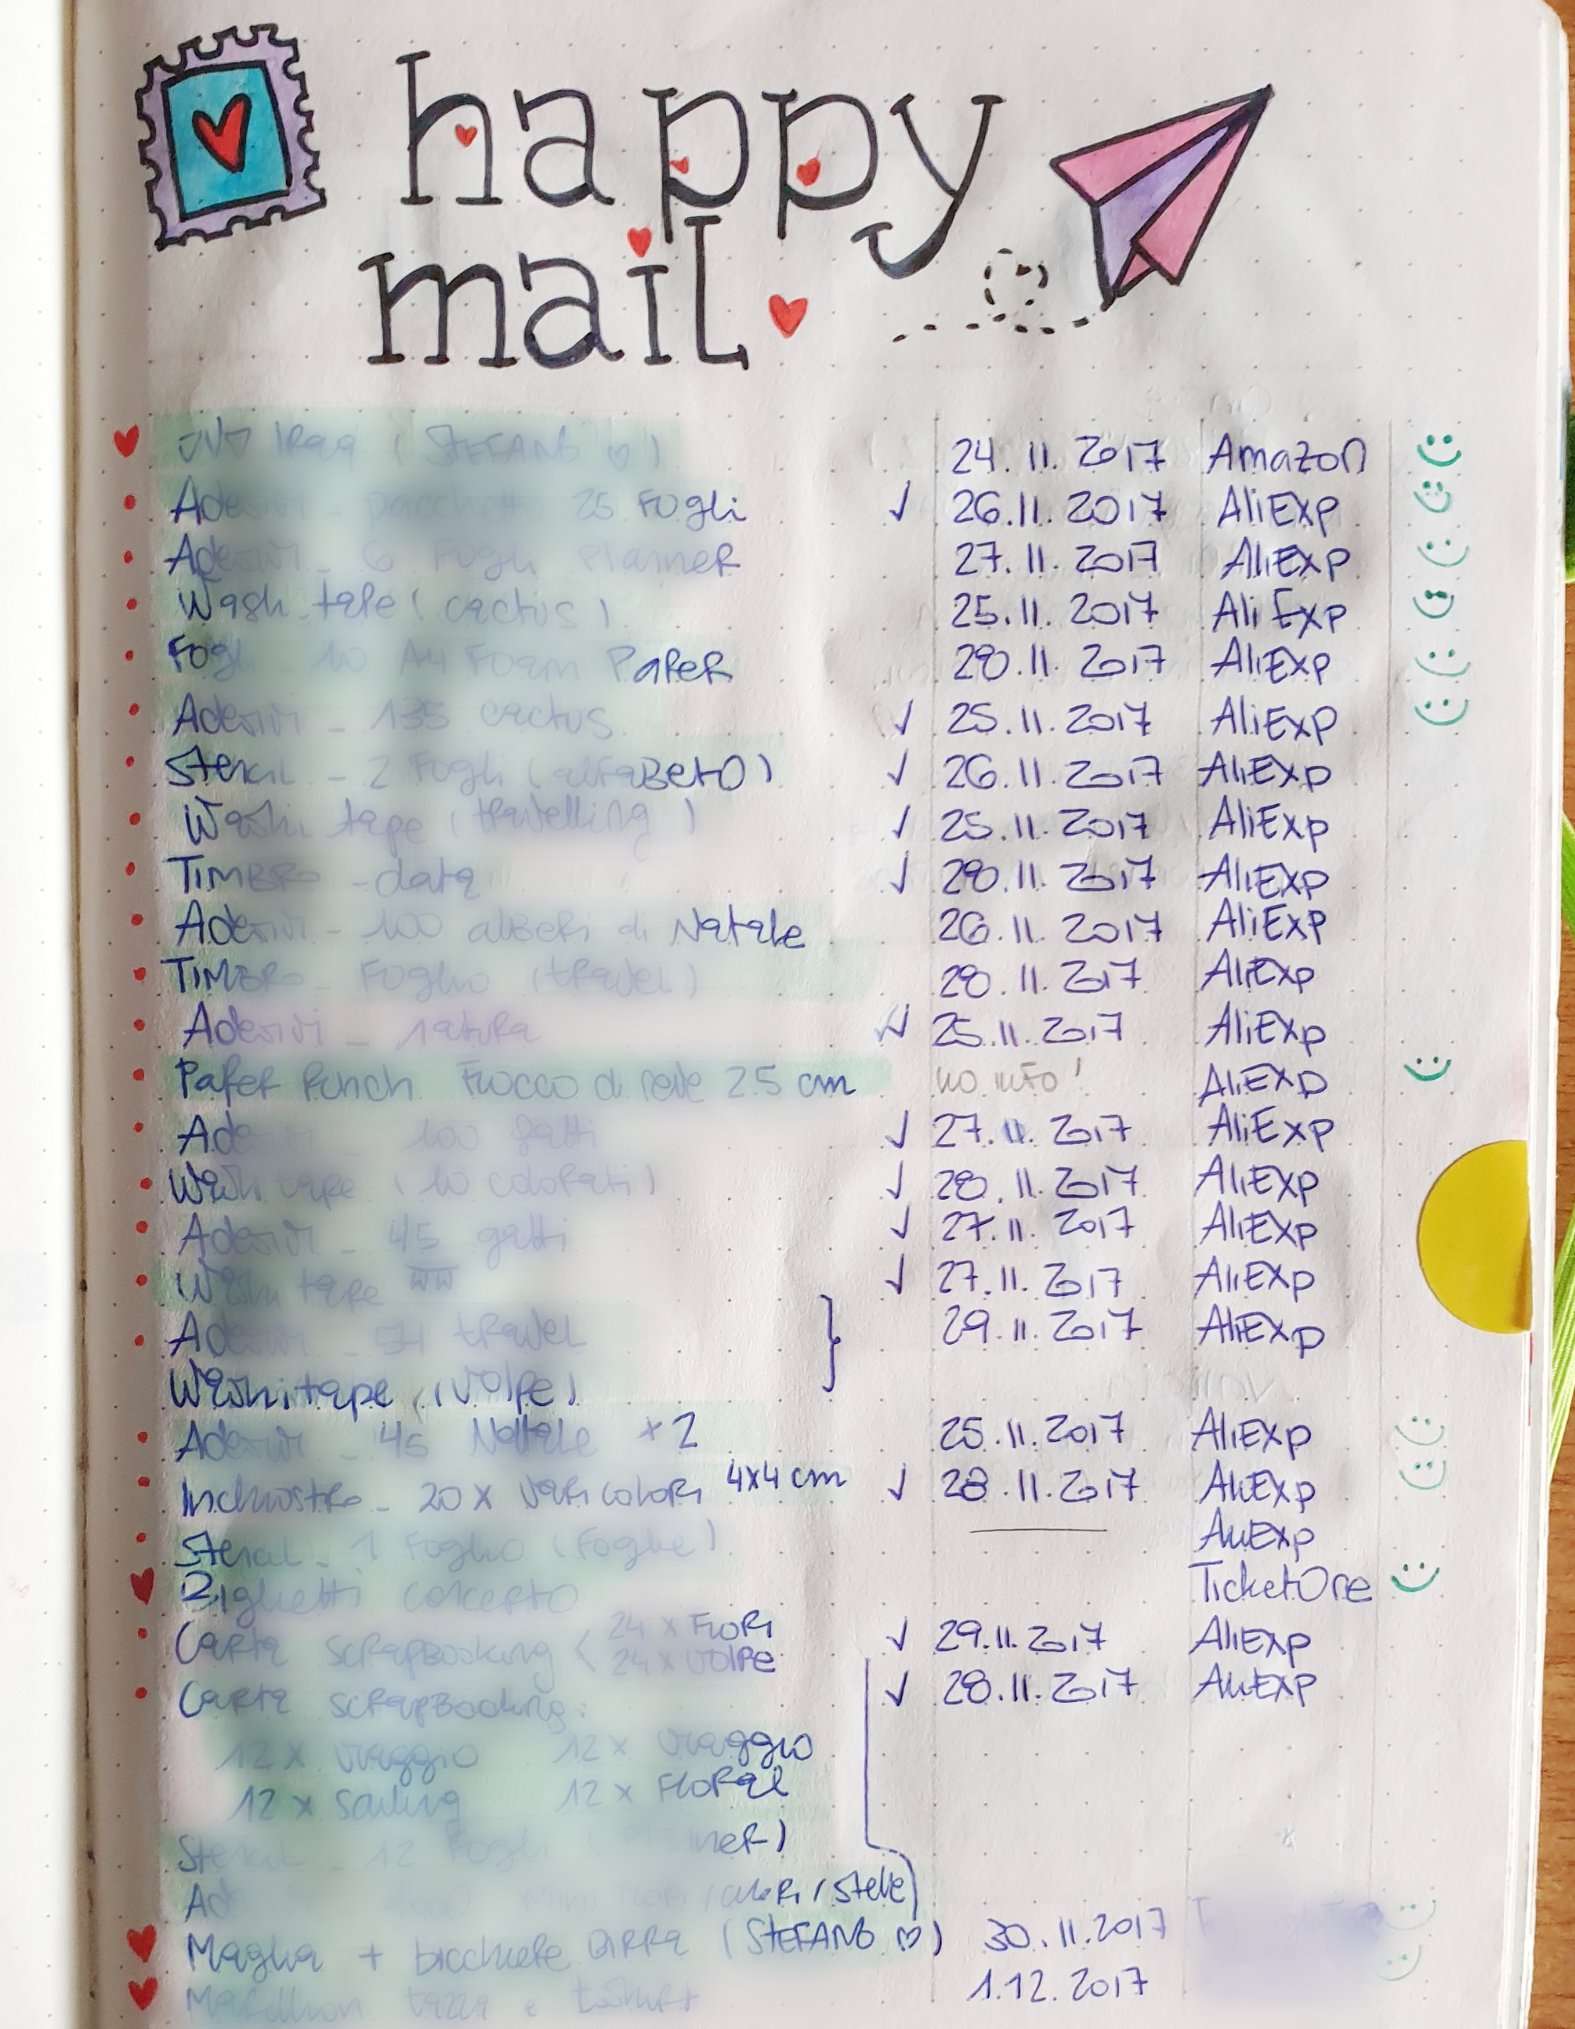 happy
mail
(STEFANO ♡) 24.11.2017 Amazon
Adesivi pacchetti 25 Fogli ✓ 26.11.2017 AliExp
Adesivi - 6 Fogli Planner 27.11.2017 AliExp
Wash tape (cactus) 25.11.2017 AliExp
Fogli 10 A4 Foam Paper 28.11.2017 AliExp
Adesivi - 135 cactus ✓ 25.11.2017 AliExp
Stencil - 2 Fogli (alfabeto) ✓ 26.11.2017 AliExp
Washi tape (travelling) ✓ 25.11.2017 AliExp
Timbro - data ✓ 28.11.2017 AliExp
Adesivi - 100 alberi di Natale 26.11.2017 AliExp
Timbro - Foglio (travel) 28.11.2017 AliExp
Adesivi - natura ✓ 25.11.2017 AliExp
Paper Punch Fiocco di neve 2.5 cm no info! AliExp
Adesivi 100 gatti ✓ 27.11.2017 AliExp
Washi tape (10 colorati) ✓ 28.11.2017 AliExp
Adesivi - 45 gatti ✓ 27.11.2017 AliExp
Washi tape ✓ 27.11.2017 AliExp
Adesivi - travel 29.11.2017 AliExp
Washi tape (volpe)
Adesivi - 45 Natale x2 25.11.2017 AliExp
Inchiostro - 20x vari colori 4x4 cm ✓ 28.11.2017 AliExp
Stencil - 1 Foglio (Foglie) AliExp
Biglietti concerto TicketOne
Carta scrapbooking < 24x Fiori ✓ 29.11.2017 AliExp
24x volpe
Carta scrapbooking: ✓ 28.11.2017 AliExp
12x viaggio 12x viaggio
12x sailing 12x Floral
Stencil - 12 Fogli
cuori / stelle
Maglia + bicchiere Birra (STEFANO ♡) 30.11.2017
tazza e tshirt 1.12.2017